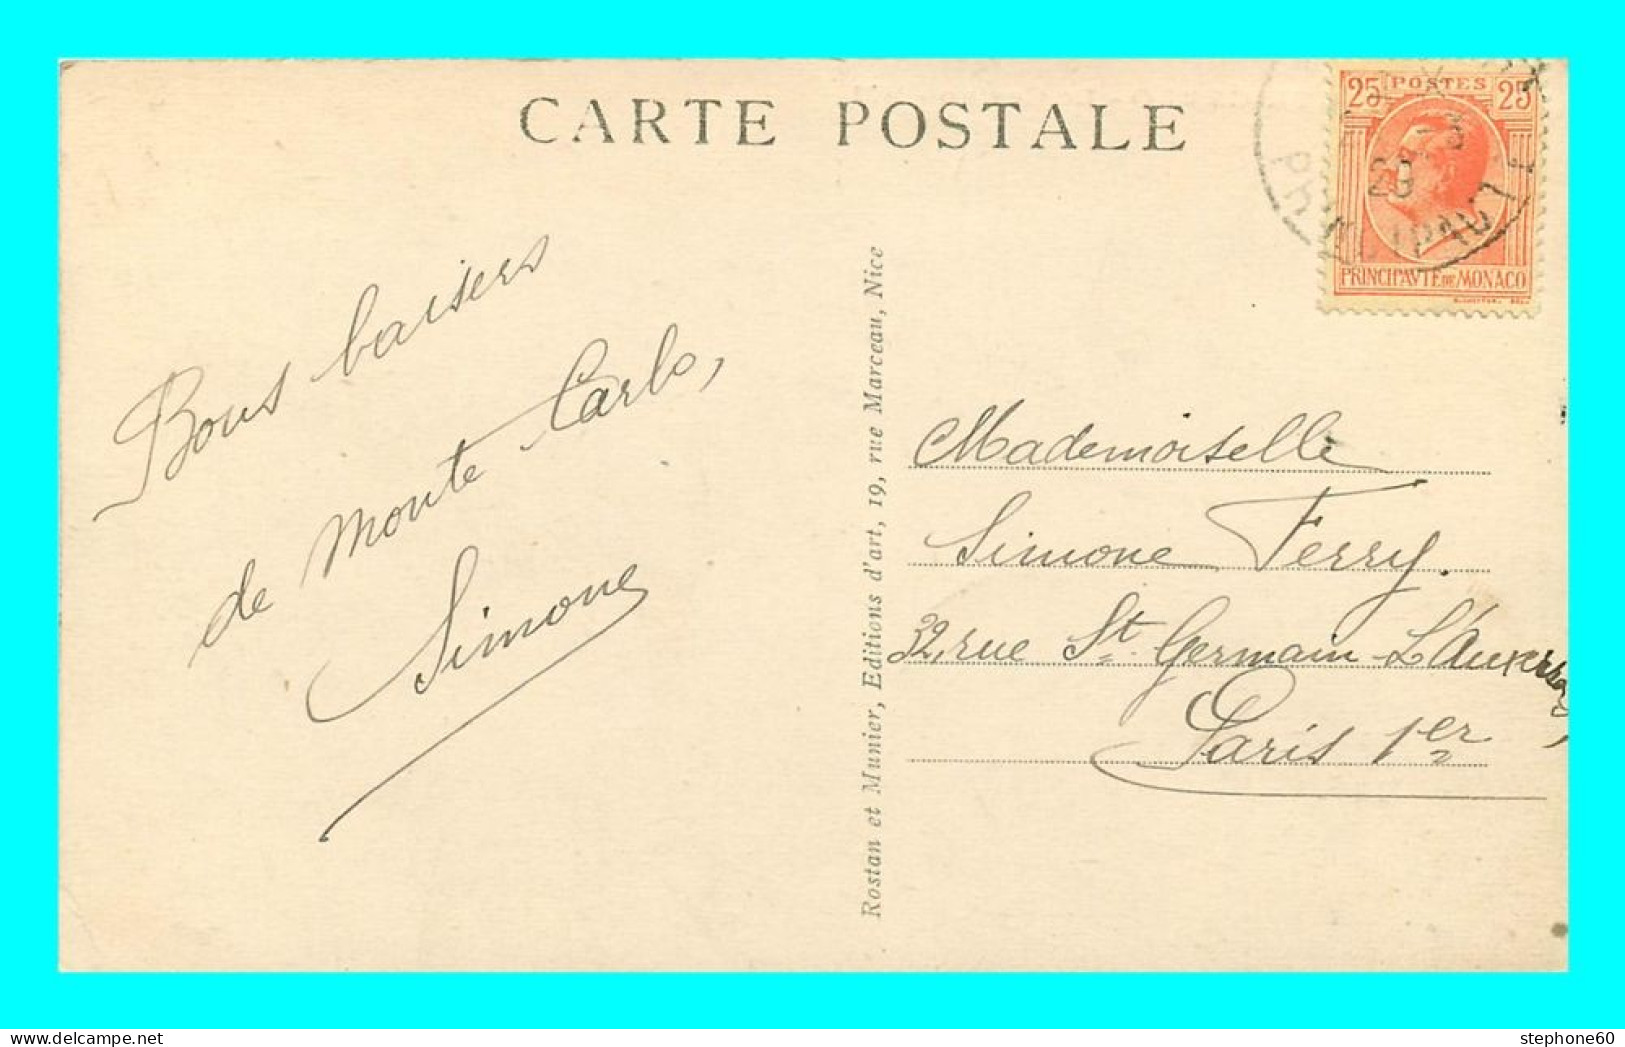 CARTE POSTALE
25 POSTES 25
PRINCIPAVTE DE MONACO
Bons baisers
de Monte Carlo,
Simone
Rostan et Munier, Editions d'art, 19, rue Marceau, Nice
Mademoiselle
Simone Ferry.
32, rue St. Germain L'Auxerrois,
Paris 1er
stephone60